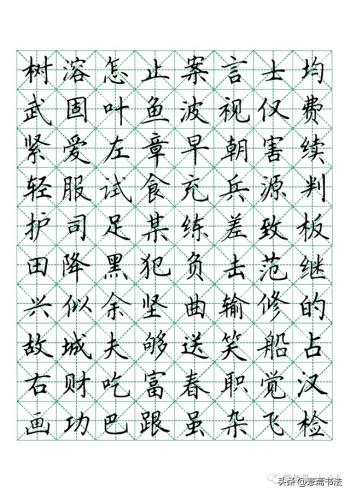 树溶怎止案言士均
武固叶鱼波视仅费
紧爱左章早朝害续
轻服试食充兵源判
护司足某练差致板
田降黑犯负击范继
兴似余坚曲输修的
故城夫够送笑船占
右财吃富春职觉汉
画功巴跟虽杂飞检